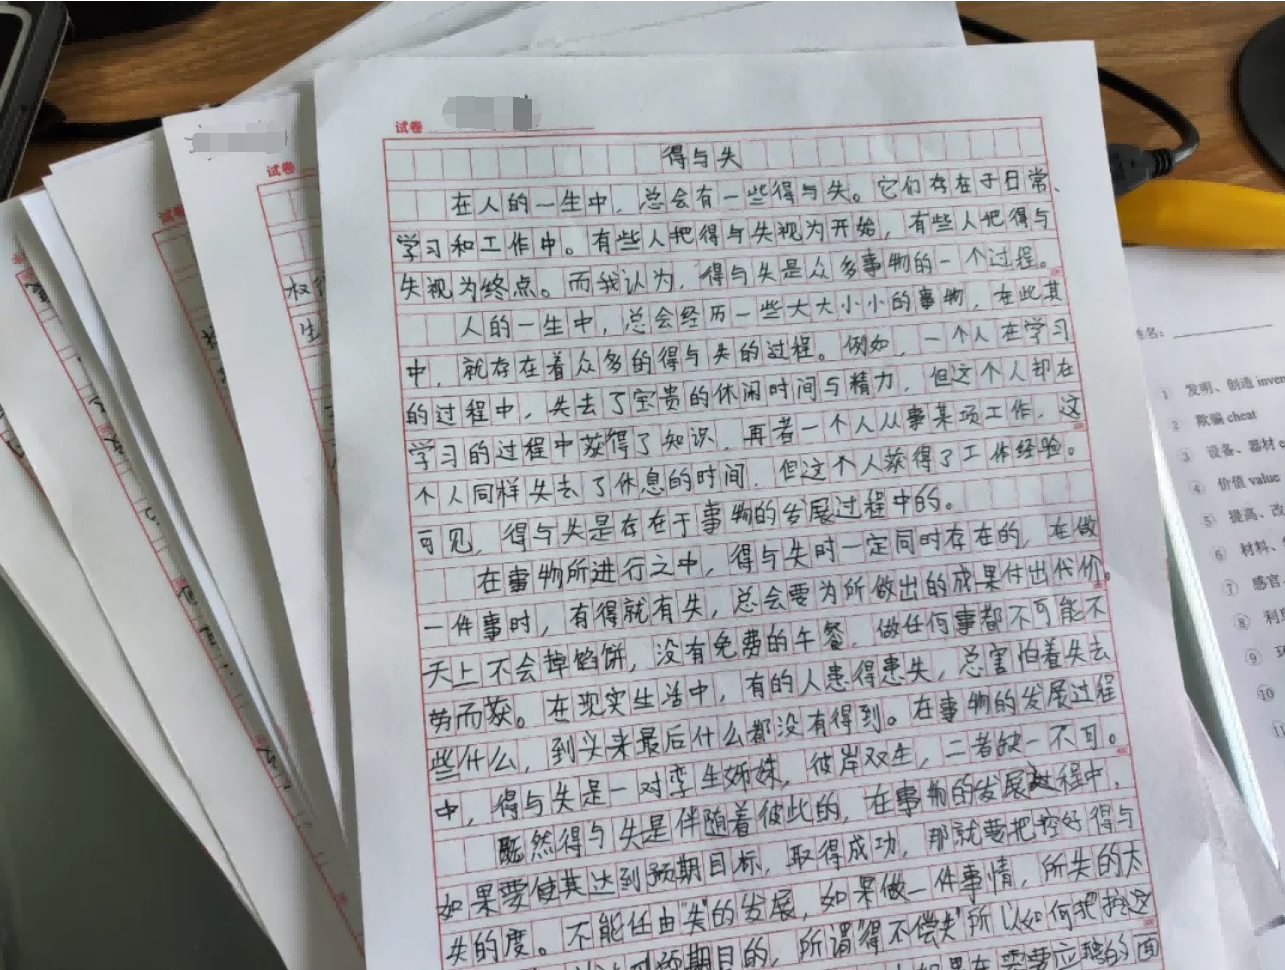 试卷
得与失
在人的一生中，总会有一些得与失。它们存在于日常、
学习和工作中。有些人把得与失视为开始，有些人把得与
失视为终点。而我认为，得与失是众多事物的一个过程。
人的一生中，总会经历一些大大小小的事物，在此其
中，就存在着众多的得与失的过程。例如，一个人在学习
的过程中，失去了宝贵的休闲时间与精力，但这个人却在
学习的过程中获得了知识，再者一个人从事某项工作，这
个人同样失去了休息的时间，但这个人获得了工作经验。
可见，得与失是存在于事物的发展过程中的。
在事物所进行之中，得与失时一定同时存在的，在做
一件事时，有得就有失，总会要为所做出的成果付出代价。
天上不会掉馅饼，没有免费的午餐，做任何事都不可能不
劳而获。在现实生活中，有的人患得患失，总害怕着失去
些什么，到头来最后什么都没有得到。在事物的发展过程
中，得与失是一对孪生姊妹，彼岸双生，二者缺一不可。
既然得与失是伴随着彼此的，在事物的发展过程中，
如果要使其达到预期目标，取得成功，那就要把控好得与
失的度。不能任由"失"的发展，如果做一件事情，所失的太
预期目的，所谓"得不偿失"所以如何把控这
如果在需要应聘的面
试卷
权
生
试卷
姓名：
1 发明、创造 inven
2 欺骗 cheat
3 设备、器材
④ 价值 value
⑤ 提高、改
6 材料、
⑦ 感官
⑧ 利
⑨ 环
⑩
11